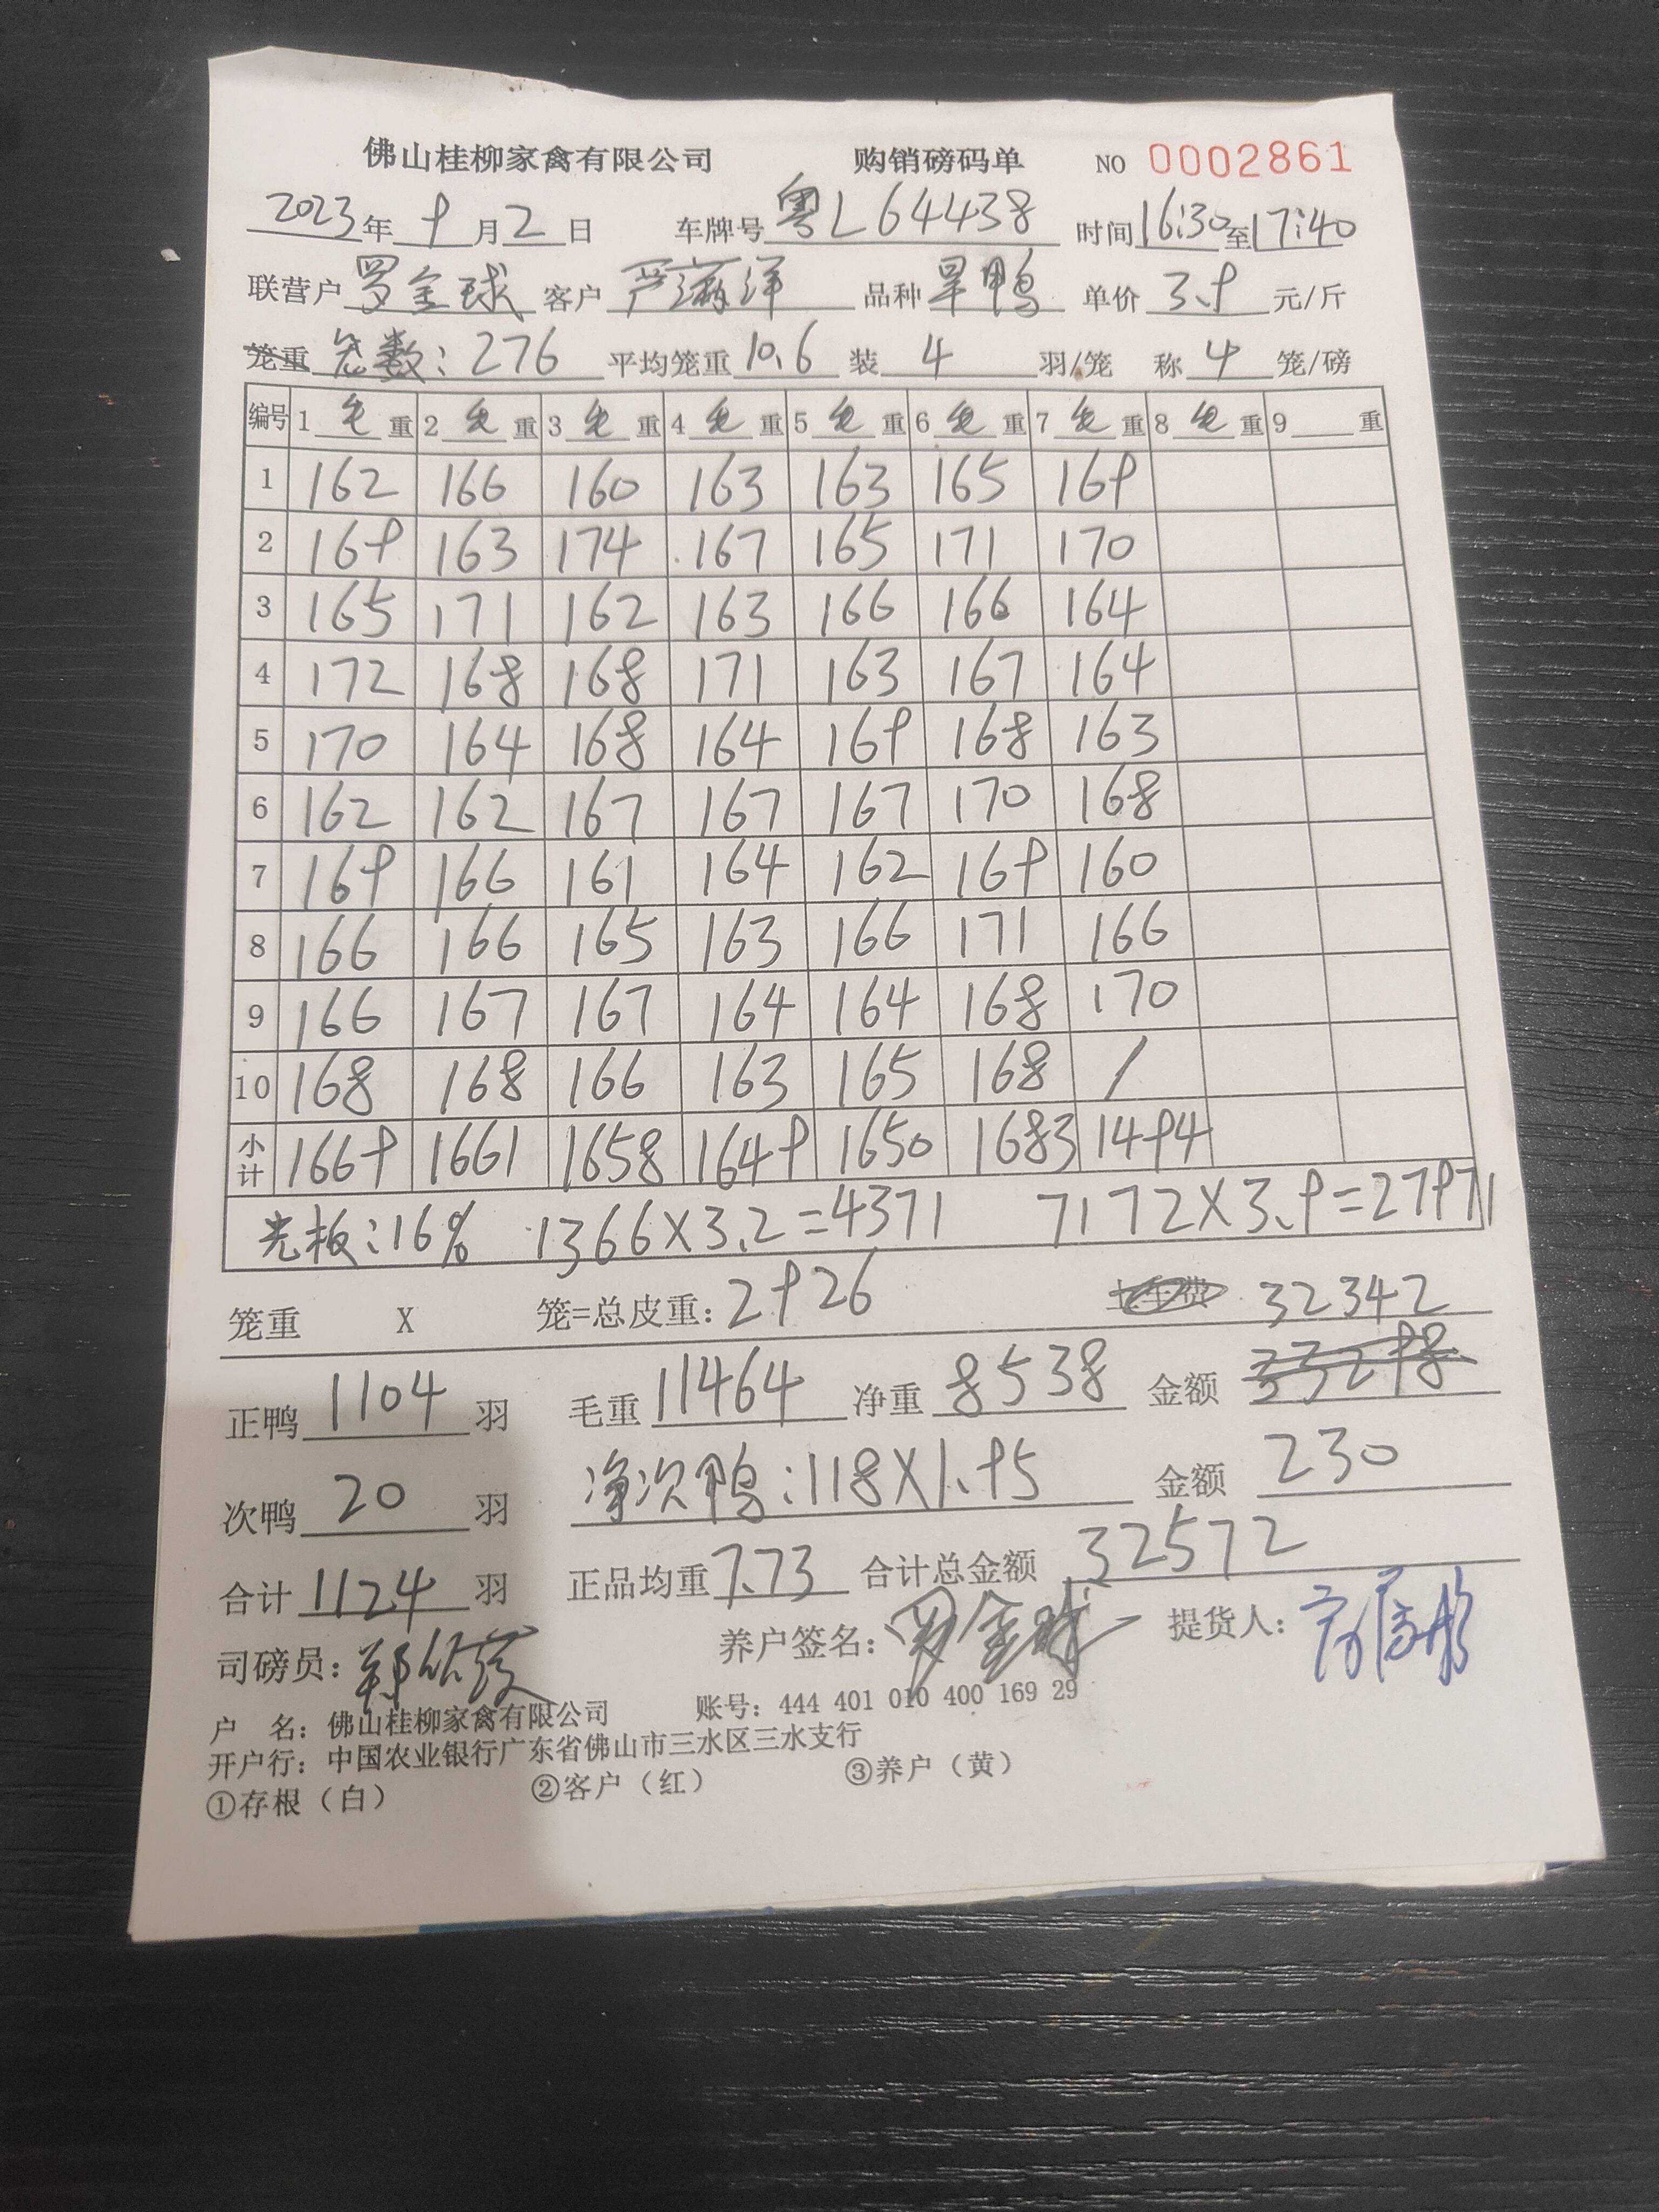 佛山桂柳家禽有限公司 购销磅码单 NO 0002861
2023年 9 月 2 日 车牌号 粤L64438 时间16:30至17:40
联营户 罗金球 客户 严满洋 品种 旱鸭 单价 3.9 元/斤
笼重 总数:276 平均笼重 10.6 装 4 羽/笼 称 4 笼/磅
编号 1 毛 重 2 毛 重 3 毛 重 4 毛 重 5 毛 重 6 毛 重 7 毛 重 8 毛 重 9 重
1 162 166 160 163 163 165 169
2 169 163 174 167 165 171 170
3 165 171 162 163 166 166 164
4 172 168 168 171 163 167 164
5 170 164 168 164 169 168 163
6 162 162 167 167 167 170 168
7 169 166 161 164 162 169 160
8 166 166 165 163 166 171 166
9 166 167 167 164 164 168 170
10 168 168 166 163 165 168 /
小计 1669 1661 1658 1649 1650 1683 1494
光板:16% 1366X3.2=4371 7172X3.9=27971
笼重 X 笼=总皮重:2926 32342
正鸭 1104 羽 毛重 11464 净重 8538 金额 33298
次鸭 20 羽 净次鸭:118X1.95 金额 230
合计 1124 羽 正品均重 7.73 合计总金额 32572
司磅员: 养户签名:罗金球 提货人:
户 名:佛山桂柳家禽有限公司 账号:444 401 010 400 169 29
开户行:中国农业银行广东省佛山市三水区三水支行
①存根(白) ②客户(红) ③养户(黄)